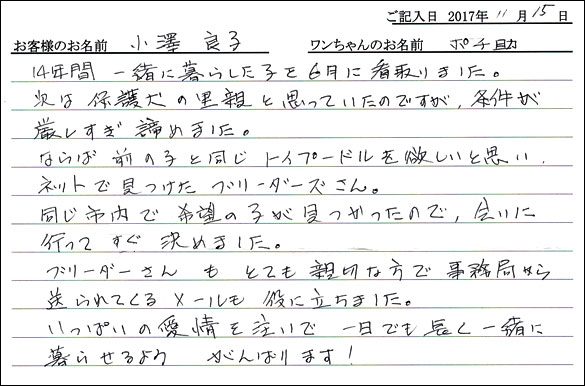 ご記入日 2017年 11月 15日
お客様のお名前 小澤 良子 ワンちゃんのお名前 ポチ助
14年間 一緒に暮らした子を6月に看取りました。
次は保護犬の里親と思っていたのですが、条件が
厳しすぎ諦めました。
ならば前の子と同じトイプードルを欲しいと思い、
ネットで見つけたブリーダーズさん。
同じ市内で希望の子が見つかったので、会いに
行ってすぐ決めました。
ブリーダーさんもとても親切な方で事務局から
送られてくるメールも役に立ちました。
いっぱいの愛情を注いで一日でも長く一緒に
暮らせるよう がんばります!